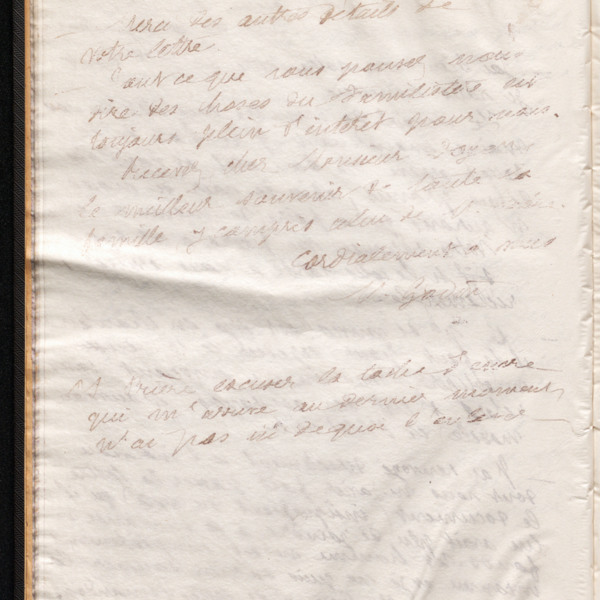 des autres détails de
votre lettre.
Tout ce que vous pouvez nous
dire des choses du familistère est
toujours plein d'intérêt pour nous.
Recevez cher Monsieur
le meilleur souvenir de toute la
famille, y compris celui de
Cordialement à vous
M. Godin
PS Prière excuser la tache d'encre
qui m'arrive au dernier moment
n'ai pas de quoi l'enlever